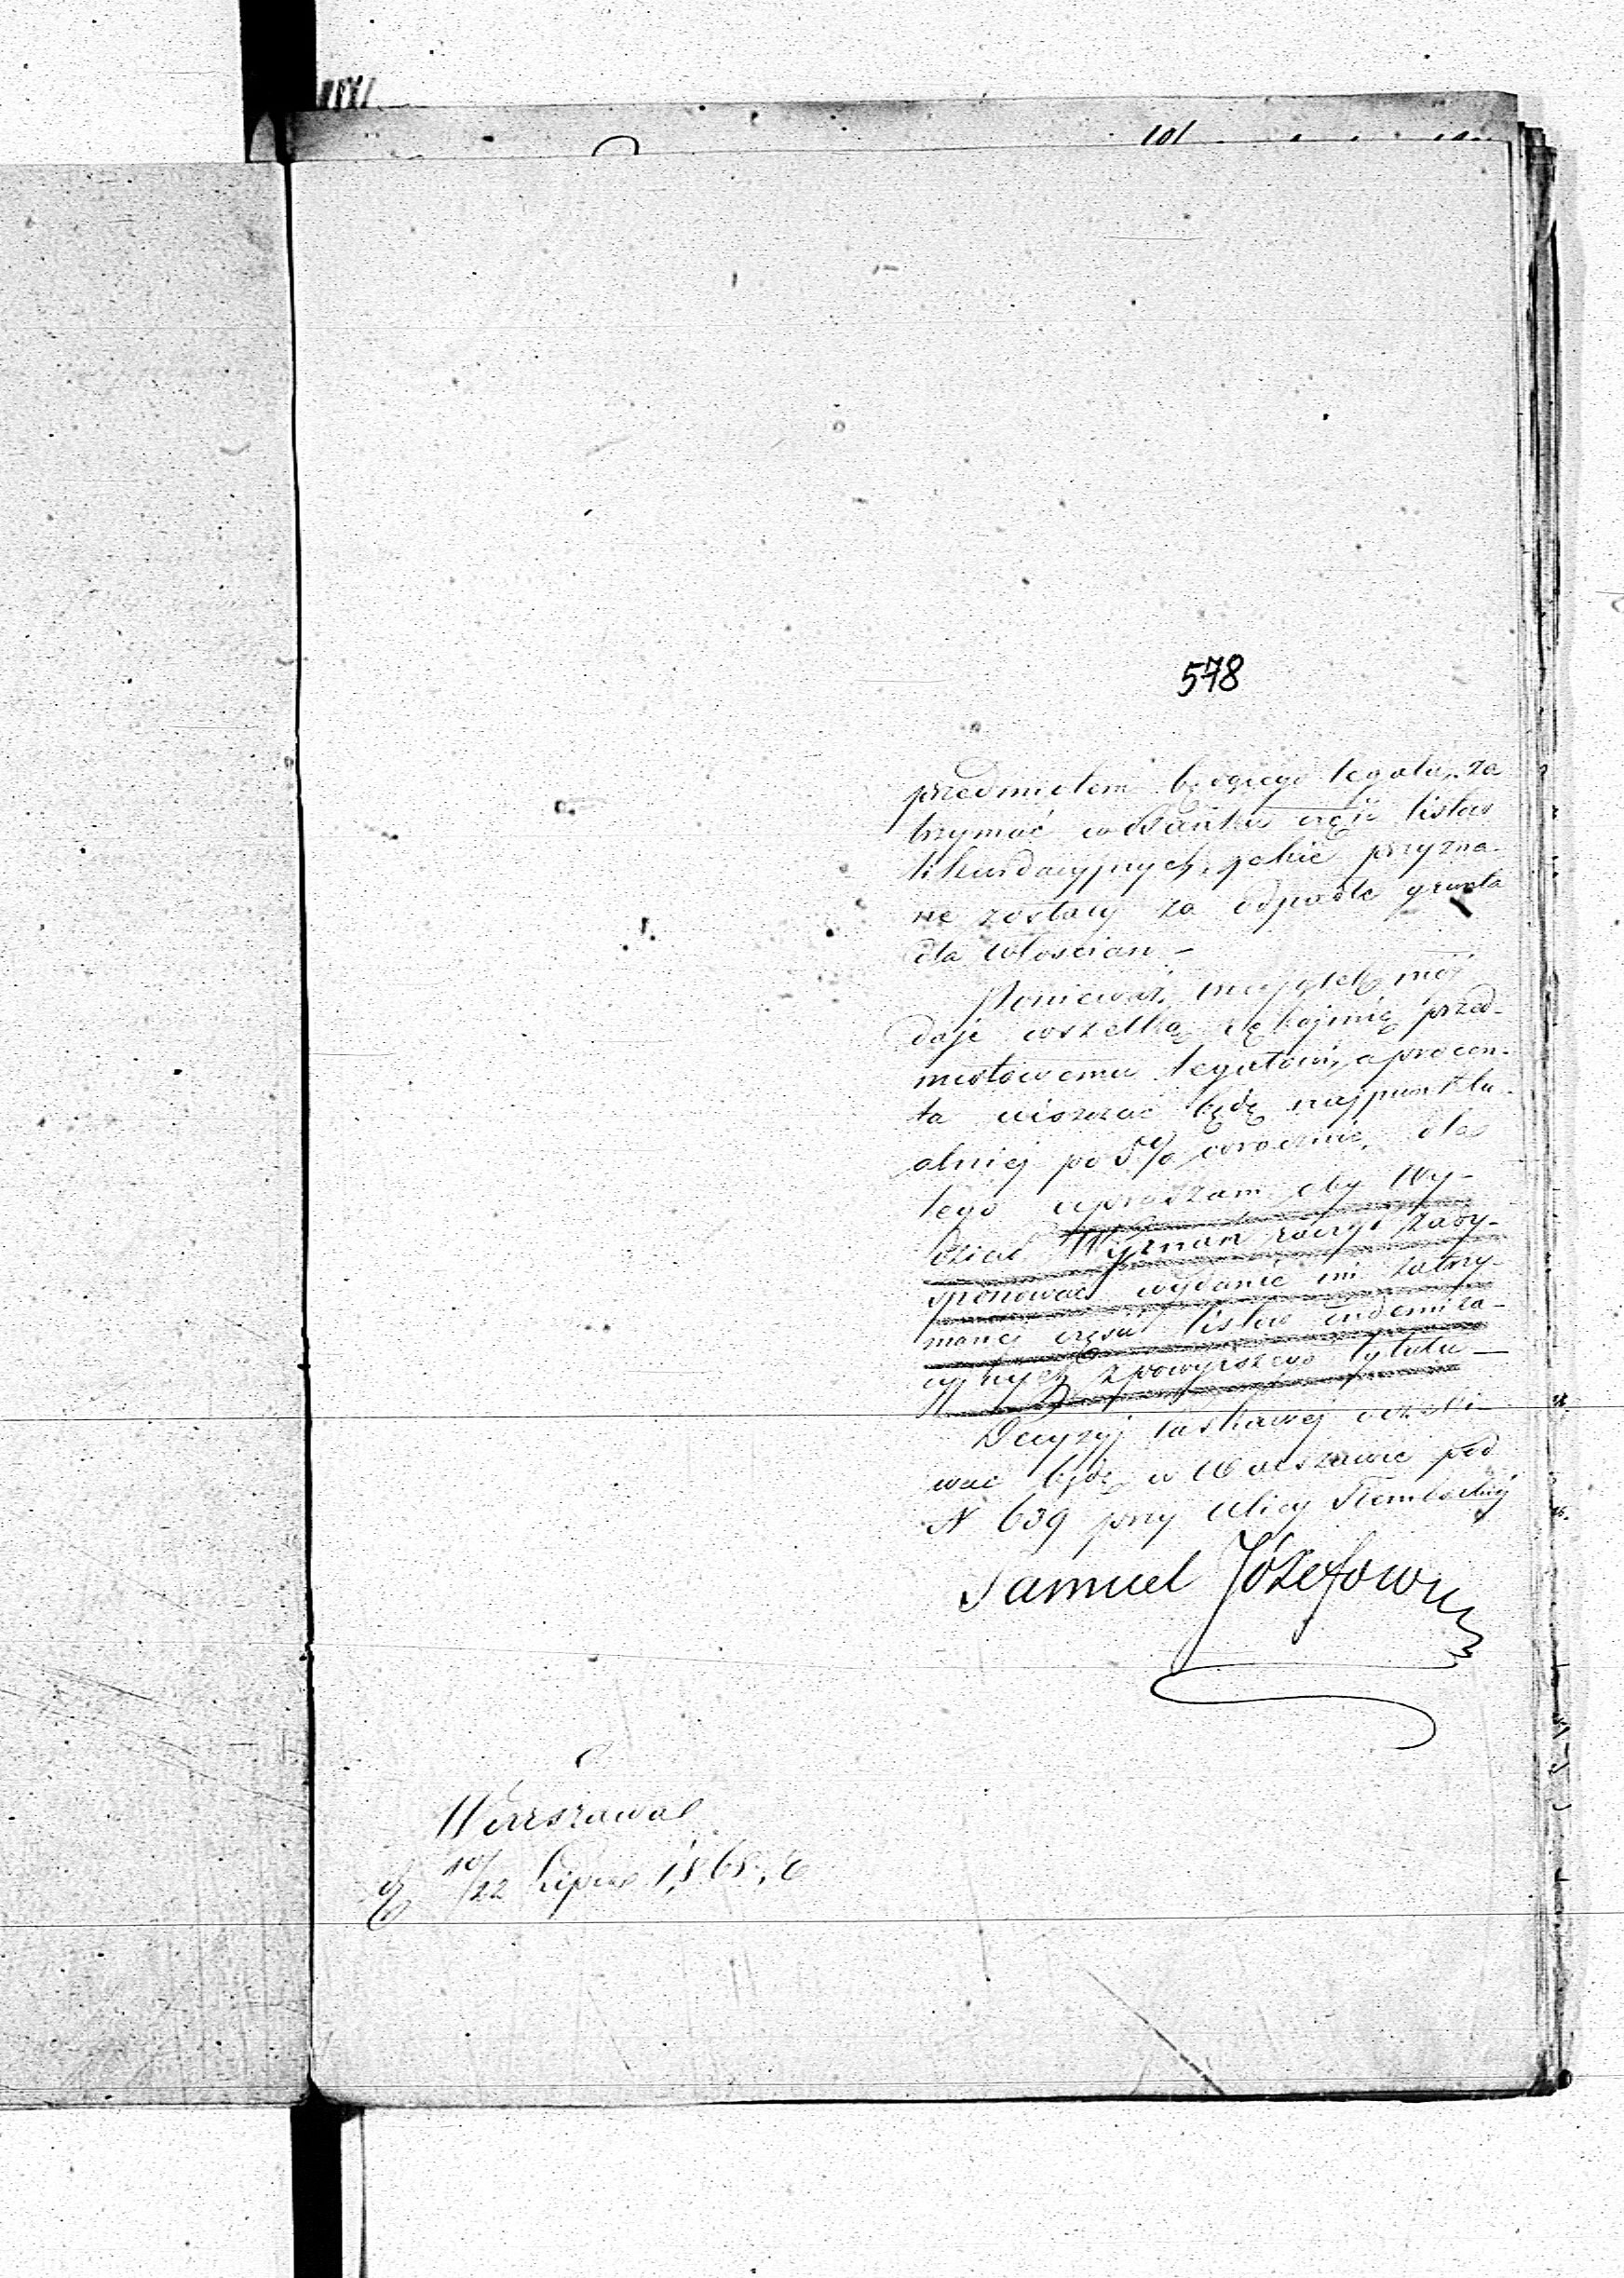 101
578
przedmiotem będącego legatu, za
trzymać w Banku część listów
likwidacyjnych, jakie przyzna-
ne zostały za odpadłe grunta
dla Włościan –
Ponieważ majątek mój
daje wszelką rękojmię przed-
miotowemu legatowi, a procen-
ta uiszczać będę najpunktu-
alniej po 5% corocznie, dla
tego upraszam aby Wy-
dział Wyznań raczył zady-
sponować wydanie mi zatrzy-
manej części listów indemiza-
cyjnych z powyższego tytułu –
Decyzyj łaskawej oczeki-
wać będę w Warszawie pod
N 639 przy Ulicy Tłomackiej
Samuel Józefowicz
Warszawa
d 10/22 Lipca 1868 r